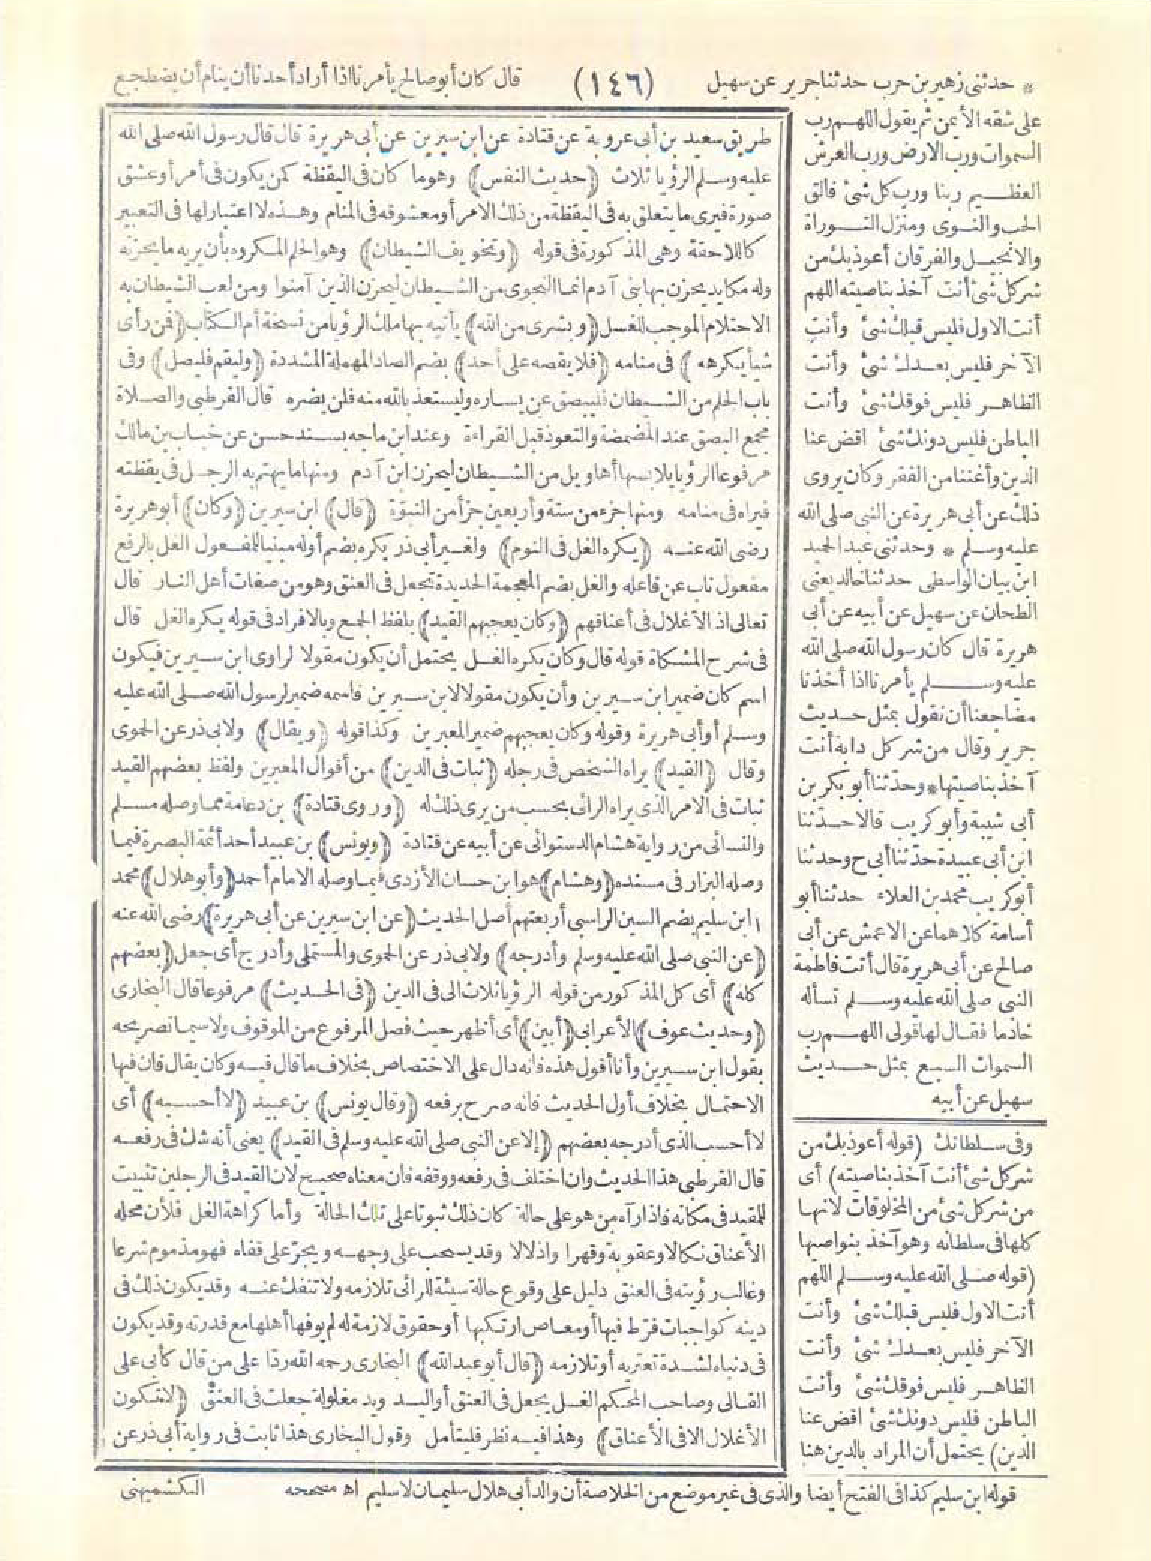 * حدثنى زهير بن حرب حدثنا جرير عن سهيل (١٤٦) قال كان أبو صالح يأمرنا اذا أراد أحدنا أن ينام أن يضطجع
على شقه الأيمن ثم يقول اللهم رب
السموات ورب الارض ورب العرش
العظيم ربنا ورب كل شئ فالق
الحب والنوى ومنزل التوراة
والانجيل والفرقان أعوذ بك من
شر كل شئ أنت آخذ بناصيته اللهم
أنت الاول فليس قبلك شئ وأنت
الآخر فليس بعدك شئ وأنت
الظاهر فليس فوقك شئ وأنت
الباطن فليس دونك شئ اقض عنا
الدين وأغننا من الفقر وكان يروى
ذلك عن أبى هريرة عن النبى صلى الله
عليه وسلم * وحدثنى عبد الحميد
ابن بيان الواسطى حدثنا خالد يعنى
الطحان عن سهيل عن أبيه عن أبى
هريرة قال كان رسول الله صلى الله
عليه وسلم يأمرنا اذا أخذنا
مضاجعنا أن نقول بمثل حديث
جرير وقال من شر كل دابة أنت
آخذ بناصيتها * وحدثنا أبو بكر بن
أبى شيبة وأبو كريب قالا حدثنا
ابن أبى عبيدة حدثنا أبى ح وحدثنا
أبو كريب محمد بن العلاء حدثنا أبو
أسامة كلاهما عن الاعمش عن أبى
صالح عن أبى هريرة قال أتت فاطمة
النبى صلى الله عليه وسلم تسأله
خادما فقال لها قولى اللهم رب
السموات السبع بمثل حديث
سهيل عن أبيه
وفى سلطانك (قوله أعوذ بك من
شر كل شئ أنت آخذ بناصيته) أى
من شر كل شئ من المخلوقات لانها
كلها فى سلطانه وهو آخذ بنواصيها
(قوله صلى الله عليه وسلم اللهم
أنت الاول فليس قبلك شئ وأنت
الآخر فليس بعدك شئ وأنت
الظاهر فليس فوقك شئ وأنت
الباطن فليس دونك شئ اقض عنا
الدين) يحتمل أن المراد بالدين هنا
طريق سعيد بن أبى عروبة عن قتادة عن ابن سيرين عن أبى هريرة قال قال رسول الله صلى الله
عليه وسلم الرؤيا ثلاث (حديث النفس) وهو ما كان فى اليقظة كمن يكون فى أمر أو عشق
صورة فيرى ما يتعلق به فى اليقظة من ذلك الامر أو معشوقه فى المنام وهذه لا اعتبار لها فى التعبير
كاللاحقة وهى المذكورة فى قوله (وتخويف الشيطان) وهو الحلم المكروه بأن يريه ما يحزنه
وله مكايد يحزن بها بنى آدم انما النجوى من الشيطان ليحزن الذين آمنوا ومن لعب الشيطان به
الاحتلام الموجب للغسل (وبشرى من الله) يأتيه بها ملك الرؤيا من نسخة أم الكتاب (فمن رأى
شيأ يكرهه) فى منامه (فلا يقصه على أحد) بضم الصاد المهملة المشددة (وليقم فليصل) وفى
باب الحلم من الشيطان فليبصق عن يساره وليستعذ بالله منه فلن يضره قال القرطبى والصلاة
تجمع البصق عند المضمضة والتعوذ قبل القراءة وعند ابن ماجه بسند حسن عن بن مالك
مرفوعا الرؤيا أهاويل من الشيطان ليحزن ابن آدم ومنها ما يهتم به الرجل فى يقظته
فيراه فى منامه ومنها جزء من ستة وأربعين جزأ من النبوة (قال) ابن سيرين (وكان) أبو هريرة
رضى الله عنه (يكره الغل فى النوم) ولغير أبى ذر يكره بضم أوله مبنيا للمفعول الغل بالرفع
مفعول ناب عن فاعله والغل بضم المعجمة الحديدة تجعل فى العنق وهو من صفات أهل النار قال
تعالى اذ الأغلال فى أعناقهم (وكان يعجبهم القيد) بلفظ الجمع وبالافراد فى قوله يكره الغل قال
فى شرح المشكاة قوله قال وكان يكره الغل يحتمل أن يكون مقولا لراوى ابن سيرين فيكون
اسم كان ضمير ابن سيرين وأن يكون مقولا لابن سيرين فاسمه ضمير لرسول الله صلى الله عليه
وسلم أو أبى هريرة وقوله وكان يعجبهم ضمير المعبرين وكذا قوله (ويقال) ولابى ذر عن الحموى
وقال (القيد) يراه الشخص فى رجله (ثبات فى الدين) من أقوال المعبرين ولفظ بعضهم القيد
ثبات فى الامر الذى يراه الرائى بحسب من يرى ذلك له (وروى قتادة) بن دعامة مما وصله مسلم
والنسائى من رواية هشام الدستوائى عن أبيه عن قتادة (ويونس) بن عبيد أحد أئمة البصرة فيما
وصله البزار فى مسنده (وهشام) هو ابن حسان الأزدى فيما وصله الامام أحمد (وأبو هلال) محمد
١ ابن سليم بضم السين الراسبى أربعتهم أصل الحديث (عن ابن سيرين عن أبى هريرة) رضى الله عنه
(عن النبى صلى الله عليه وسلم وأدرجه) ولابى ذر عن الحموى والمستملى وأدرج أى جعل (بعضهم
كله) أى كل المذكور من قوله الرؤيا ثلاث الى فى الدين (فى الحديث) مرفوعا قال البخارى
(وحديث عوف) الأعرابى (أبين) أى أظهر حيث فصل المرفوع من الموقوف ولاسيما تصريحه
بقول ابن سيرين وأنا أقول هذه فانه دال على الاختصاص بخلاف ما قال فيه وكان يقال فان فيها
الاحتمال بخلاف أول الحديث فانه صرح برفعه (وقال يونس) بن عبيد (لا أحسبه) أى
لا أحسب الذى أدرجه بعضهم (إلا عن النبى صلى الله عليه وسلم فى القيد) يعنى أنه شك فى رفعه
قال القرطبى هذا الحديث وان اختلف فى رفعه ووقفه فان معناه صحيح لان القيد فى الرجلين تثبيت
للمقيد فى مكانه فاذا رآه من هو على حالة كان ذلك ثبوتا على تلك الحالة وأما كراهة الغل فلأن محله
الأعناق نكالا وعقوبة وقهرا واذلالا وقد يسحب على وجهه ويجر على قفاه فهو مذموم شرعا
وغالب رؤيته فى العنق دليل على وقوع حالة سيئة للرائى تلازمه ولا تنفك عنه وقد يكون ذلك فى
دينه كواجبات فرط فيها أو معاص ارتكبها أو حقوق لازمة له لم يوفها أهلها مع قدرته وقد يكون
فى دنياه لشدة تعتريه أو تلازمه (قال أبو عبد الله) البخارى رحمه الله ردا على من قال كأبى على
القالى وصاحب المحكم الغل يجعل فى العنق أو اليد ويد مغلولة جعلت فى العنق (لا تكون
الأغلال الا فى الأعناق) وهذا فيه نظر فليتأمل وقول البخارى هذا ثابت فى رواية أبى ذر عن
الكشميهنى
قوله ابن سليم كذا فى الفتح أيضا والذى فى غير موضع من الخلاصة أن والد أبى هلال سليمان لا سليم اه مصححه